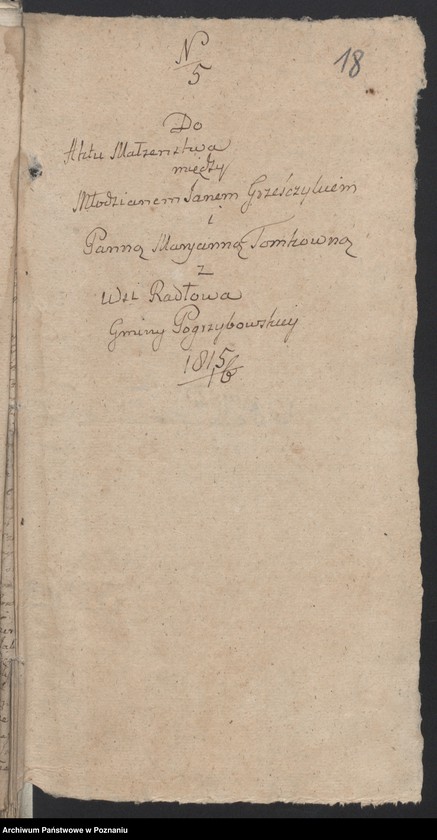 N
5
18
Do
Aktu Małzenstwa
między
Młodzianem Janem Grześczykiem
i
Panną Maryanną Tomkowną
z
Wsi Radłowa
Gminy Pogrzybowskiey
1815/16
Archiwum Państwowe w Poznaniu